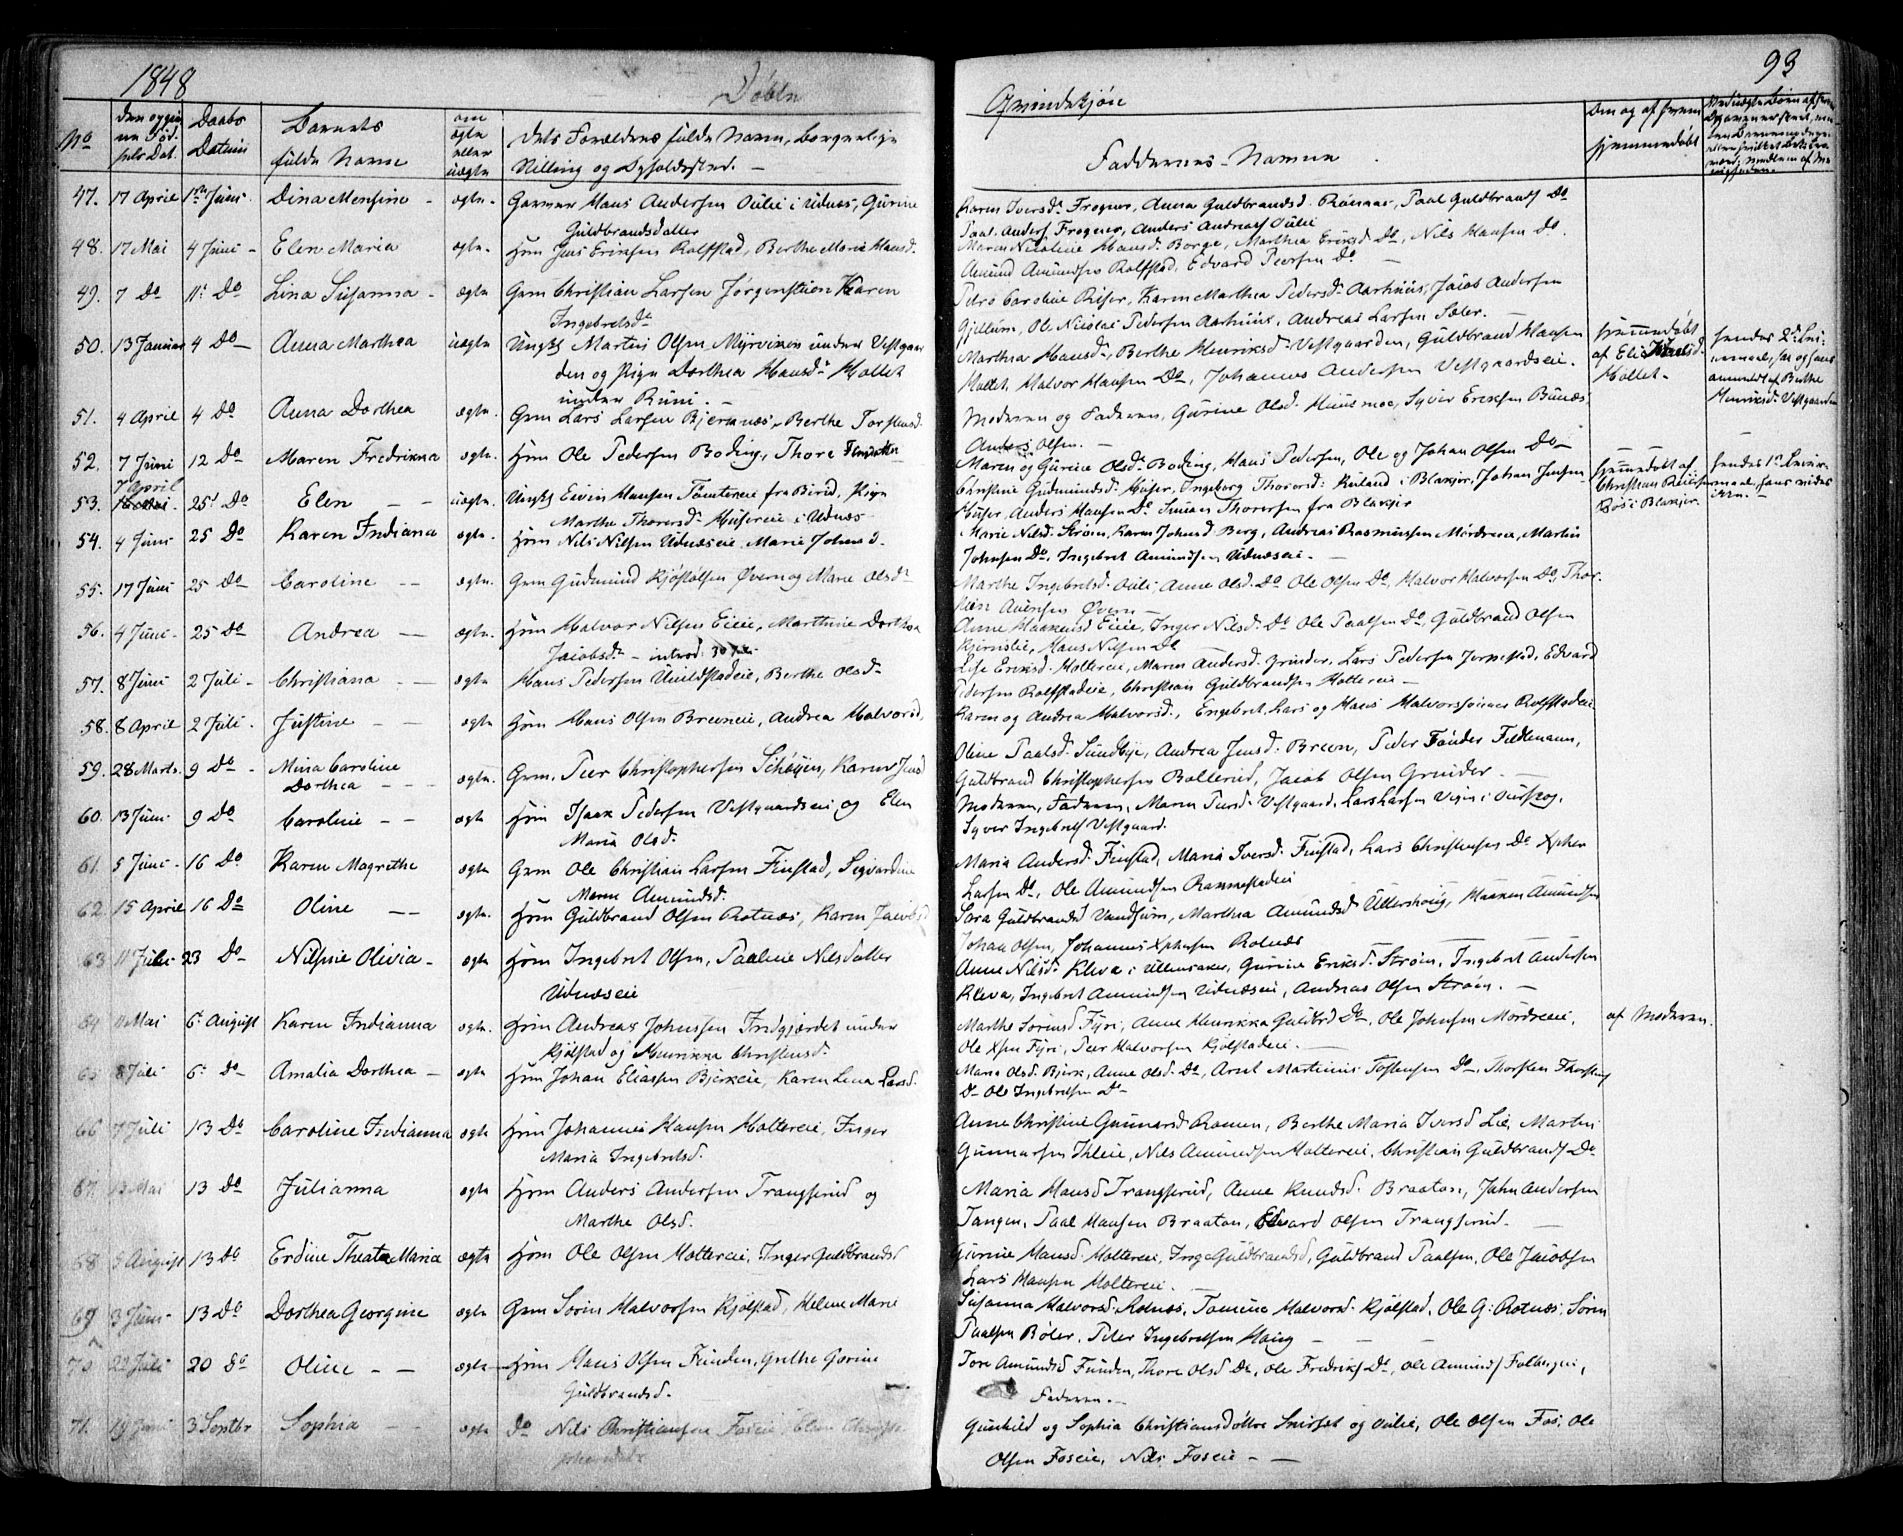 1848
Døbte
Qvindekjön
93
No
den og gin
nen Föd
sels Dat.
Daabs
Datum
Barnets
fulde Navn
om
ægte
eller
uægte
dets Forældres fulde Navn, borgerlige
Stilling og Opholdssted. —
Faddernes Navne
Om og af hvem
hjemmedöbt
47. 17 April 1ste Juni Dina Mensine - ægte. Gaarmr Hans Andersen Oulie i Udnæs, Gurine
Guldbrandsdatter
Karen Iversdr Frogner, Anna Guldbrandsd. Rönaas, Paal Guldbrands Do
Paal Anders Frogner, Anders Andreas Oulie
48. 17 Mai 4 Juni - Elen Maria ægte. Hsm Jens Eriksen Rolfstad, Berthe Marie Hansd.
Maren Nicoline Hansd. Borge, Marthea Eriksd Do, Nils Hansen Do.
Amund Amundsen Rolfstad, Edvard Peersen Do —
49. 7 Do 11. Do Lina Susanna - ægte. Gsm Christian Larsen Jörgenstuen Karen
Ingebretsdr
Petro Caroline Riser, Karen Marthea Pedersdr Aarhuus, Jacob Andersen
Gjellum, Ole Nicolai Pedersen Aarhuus, Andreas Larsen Soler. —
50. 13 Januar 4 Do — Anna Marthea uægte Ungk Martin Olsen Myrvinen under Vestgaar
den og Pige Dorthea Hansdr Hollet
under Runi. —
Marthea Hansdr, Berthe Henriksdr Vestgaarden, Guldbrand Hansen
Hollet, Halvor Hansen Do, Johannes Andersen Vestgaardseie.
hjemmedöbt
af Elie Karlsd.
Hollet -
hendes 2d Lei-
ermaal, hans
anmeldt af Berthe
Henriksdr Vestgaarden
51. 4 April 4 Do Anna Dorthea ægte. Gsm Lars Larsen Bjermnæs, Berthe Torstensd.
Moderen og Faderen, Gurine Olsd. Huusmoe, Syver Eriksen Bunæs
Anders Olsen. —
52. 7 Juni 12 Do Maren Fredrikka ægte. Hsm Ole Pedersen Boding, Thore
Maren og Gurine Olsdr Boding, Hans Pedersen, Ole og Johan Olsen Do —
53. 7 April 25 Do Elen — uægte. Ungk Even Hansen Tömtereie fra Birid, Pige
Marthe Thoresdr Husereie i Udnæs
Christine Gudmundsd. Huser, Ingeborg Thoresd. Ruland i Blakjer, Johan Jensen
Huser, Anders Hansen Do Simen Thoresen fra Blakjer
hjemmedöbt af
Christian
Roös i Blakjer.
hendes 1ste Leier-
maal, hans vides
ikke. —
54. 4 Juni 25 Do Karen Indiana ægte. Hsm Nils Nilsen Udnæseie, Marie Johnsd.
Marie Nilsd. Ström, Karen Johnsd Berg, Andreas Rasmussen Mördreeie, Martin
Johnsen Do, Ingebret Amundsen Udnæseie. —
55. 17 Juni 25 Do Caroline — — ægte. Gsm Gudmund Kjöstolsen Övern og Marie Olsdr
Marthe Ingebretsd. Oulie, Anne Olsd. Do Ole Olsen Do, Halvor Halvorsen Do, Thor-
sten Övern —
56. 4 Juni - 25 Do Andrea — ægte. Hsm Halvor Nilsen Eieie, Marthine Dorthea
Jacobsdr — introd: 30
Anne Haakensd Eieie, Inger Nilsd. Do Ole Paalsen Do, Guldbrand Olsen
Kjernslie, Hans Nilsen Do
57. 8 Juni 2 Juli - Christiana — ægte Hans Pedersen Unildstadeie, Berthe Olsd.
Lise Eriksd. Holtereie, Maren Andersd. Grinder, Lars Pedersen Jorpestad, Edvard
Pedersen Rolfstadeie, Christian Guldbrandsen Holtereie —
58. 8 April 2 Juli. Justine — — ægte Hsm Hans Olsen Breeneie, Andrea Halvorsd.
Karen og Andrea Halvorsd., Engebret, Lars og Hans Halvorsönner Rolfstadeie
59. 28 Marts. 9 Do. Mina Caroline
Dorthea — — — ægte. Gsm. Peer Christophersen Schöyen, Karen Jensd
Oline Paalsd. Sundbye, Andrea Jensd. Breen, Peder Tönder Fieldmann,
Guldbrand Christophersen Bollerud, Jacob Olsen Grinder. —
60. 13 Juni. 9 Do Caroline — — ægte Hsm Isaak Pedersen Vestgaardseie og Elen
Maria Olsd.
Moderen, Faderen, Maren Peersd. Vestgaard, Lars Larsen Vigen i Ourskog,
Syver Ingebrets Vestgaard.
61. 5 Juni - 16 Do Karen Magrethe ægte Gsm Ole Christian Larsen Finstad, Segvardine
Marie Amundsd.
Maria Andersd. Finstad, Maria Iversd. Finstad, Lars Christensen Do Xpher
Larsen Do, Ole Amundsen Rammestadeie
62. 15 April 16 Do Oline — — ægte. Hsm Guldbrand Olsen Rotnæs, Karen Jacobsd
Sara Guldbrandsd Vandsum, Marthea Amundsd Ullershoug, Haaken Amundsen
Johan Olsen, Johannes Xphersen Rotnæs
63. 11 Juli 23 Do — Nilsine Olivia — ægte Hsm Ingebret Olsen, Pauline Nilsdatter
Udnæseie
Anne Nilsdr. Kleva i Ullensaker, Gurine Eriksd. Ström, Ingebret Andersen
Kleva, Ingebret Amundsen Udnæseie, Andreas Olsen Ström. —
64 11 Mai 6. August Karen Indianna ægte. Hsm Andreas Johnssen Indgjærdet under
Kjölstad og Henrikke Christensd.
Marthe Sörensd Fyri, Anne Henrikka Guldbrd Do, Ole Johnsen Mördreeie,
Ole Xsen Fyri, Peer Halvorsen Kjölstadeie. —
af Moderen.
65 8 Juli 6. Do — Amalia Dorthea — ægte Hsm Johan Eliassen Bjerkeie, Karen Lena Larsd.
Maria Olsd. Bjerk, Anne Olsd. Do, Arnt Martinius Tostensen Do, Thorsten Thorsteng
Do Ole Ingebretsen Do
66 7 Juli 13 Do Caroline Indianna ægte Hsm Johannes Hansen Holtereie, Inger
Maria Ingebretsd.
Anne Christine Gunnarsd Romen, Berthe Maria Iversd Lie, Martin
Gunnarsen Ihleie, Nils Amundsen Holtereie, Christian Guldbrands Do
67. 13 Mai 13 Do Julianna ægte Hsm Anders Andersen Trangsrud og
Marthe Olsd.
Maria Hansd Trangsrud, Anne Knudsd. Braaten, John Andersen
Tangen, Paal Hansen Braaten, Edvard Olsen Trangsrud. —
68 5 August 13 Do Erdine Theata Maria ægte Hsm Ole Olsen Holtereie, Inger Guldbrandsd
Gurine Hansd. Holtereie, Inge Guldbrandsd, Guldbrand Paalsen, Ole Jacobsen
Lars Hansen Holtereie. —
69 3 Juni - 13 Do Dorthea Georgine ægte Gsm Sören Halvorsen Kjölstad, Helene Marie
Susanna Halvorsd. Rotnæs, Tomine Halvorsd. Kjölstad, Ole G: Rotnæs, Sören
Paalsen Böler, Peter Ingebretsen Haug — —
70. 22 Juli 20 Do Oline — — ægte Hsm Hans Olsen Funden, Grethe Gorine
Guldbrandsd.
Tore Amundsd Funden, Thore Olsd Do, Ole Fredriks Do, Ole Amunds Folbergeie,
Faderen. —
71. 19 Juni 3 Septbr Sophia — — ægte Do Nils Christiansen Foseie, Elen
Gunhild og Sophia Christiansdöttre Smerset og Oulie, Ole Olsen Fos, Ole
Olsen Foseie, Nils Foseie — —